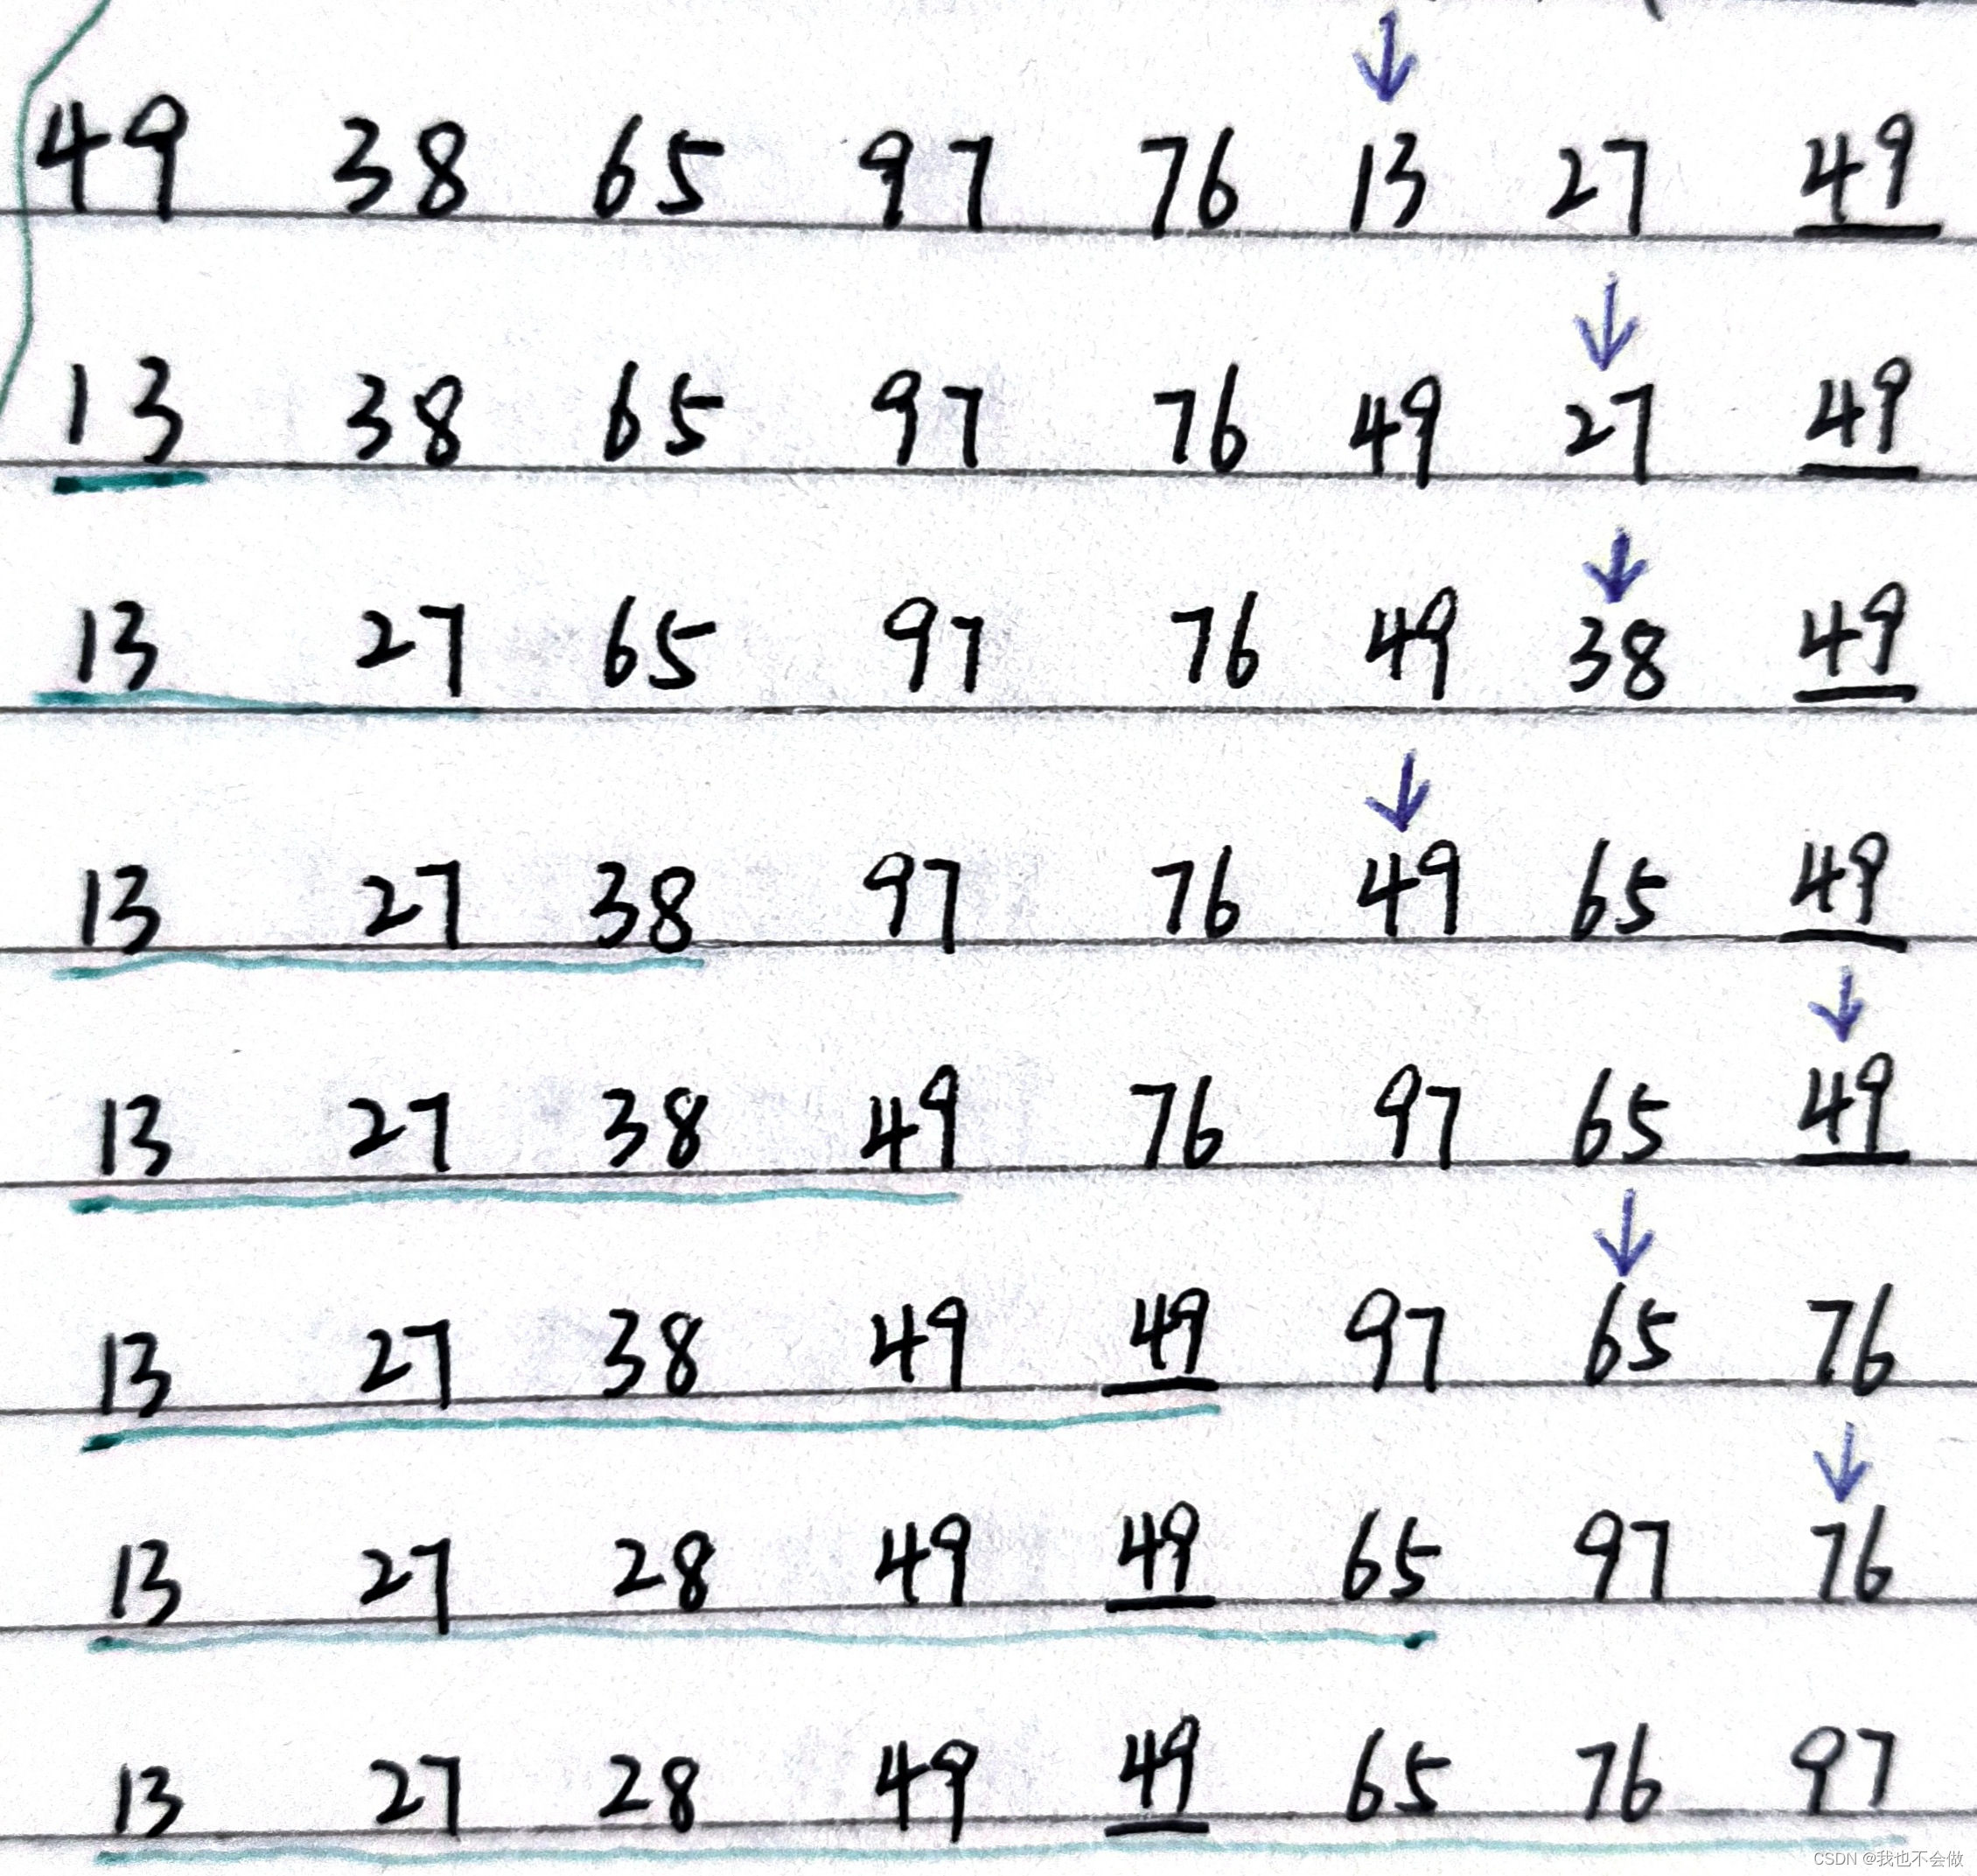 49 38 65 97 76 13 27 49
13 38 65 97 76 49 27 49
13 27 65 97 76 49 38 49
13 27 38 97 76 49 65 49
13 27 38 49 76 97 65 49
13 27 38 49 49 97 65 76
13 27 28 49 49 65 97 76
13 27 28 49 49 65 76 97
CSDN @我也不会做